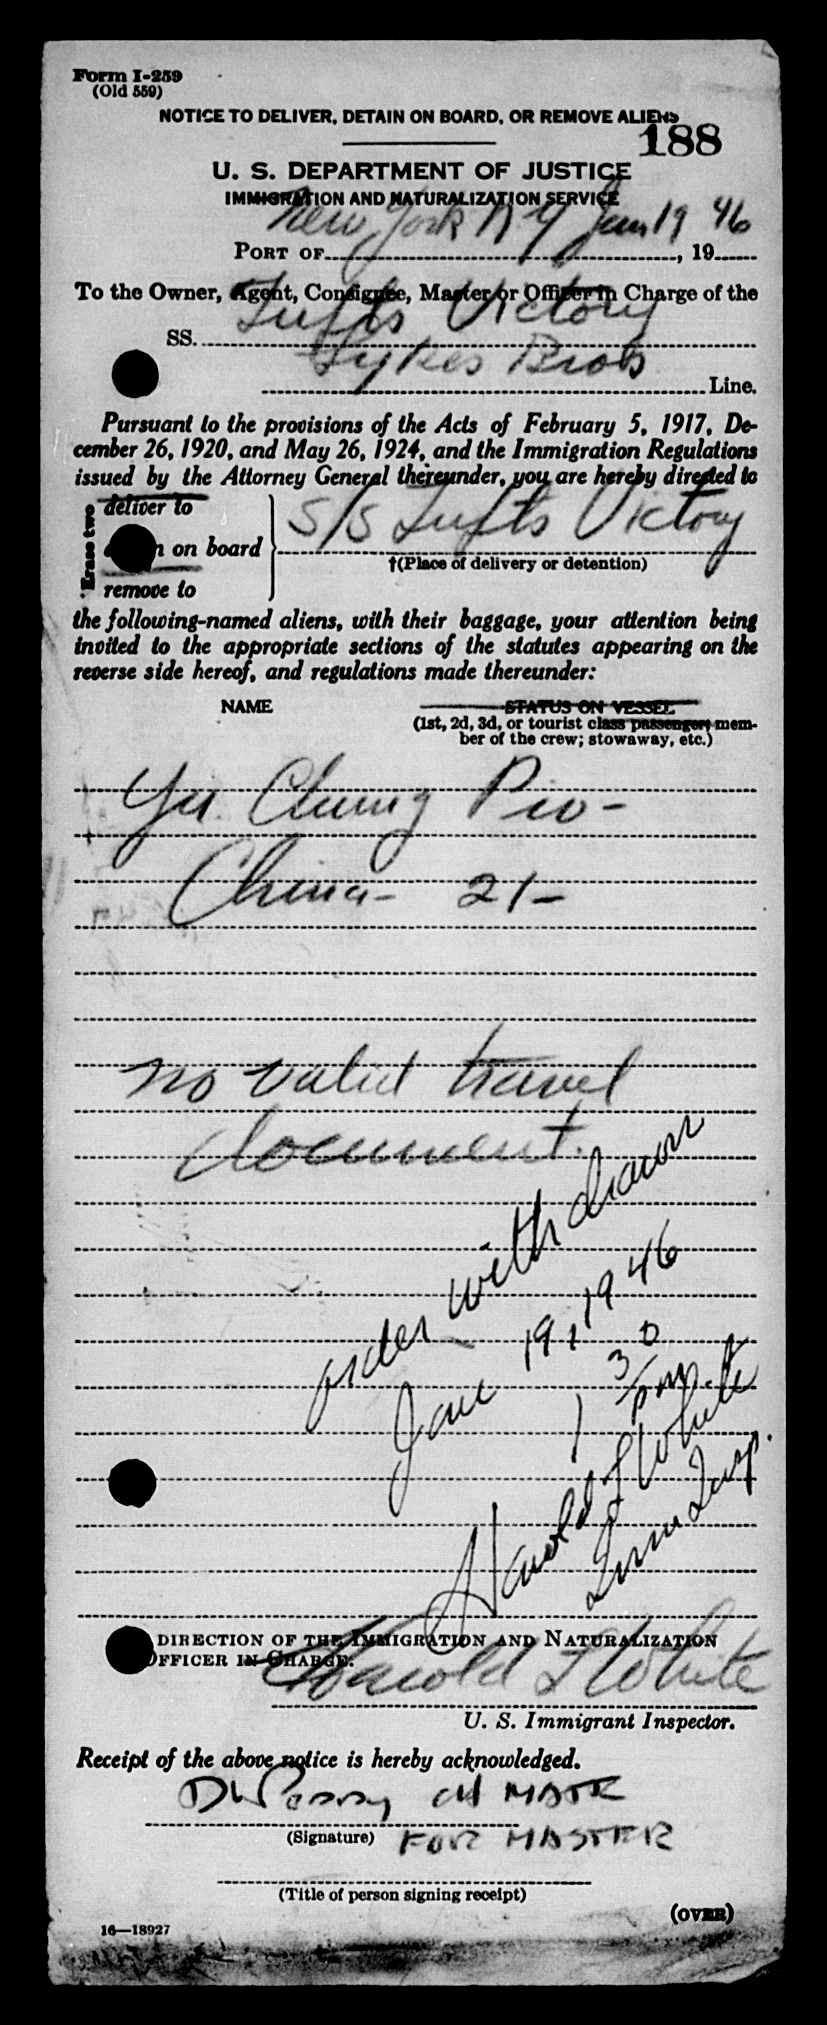 Form I-259
(Old 559)
NOTICE TO DELIVER, DETAIN ON BOARD, OR REMOVE ALIENS
188
U. S. DEPARTMENT OF JUSTICE
IMMIGRATION AND NATURALIZATION SERVICE
New York N Y Jan 19 46
PORT OF , 19
To the Owner, Agent, Consignee, Master or Officer in Charge of the
SS. Tufts Victory
Lykes Bros Line.
Pursuant to the provisions of the Acts of February 5, 1917, De-
cember 26, 1920, and May 26, 1924, and the Immigration Regulations
issued by the Attorney General thereunder, you are hereby directed to
Erase two
deliver to
on board S/S Tufts Victory
†(Place of delivery or detention)
remove to
the following-named aliens, with their baggage, your attention being
invited to the appropriate sections of the statutes appearing on the
reverse side hereof, and regulations made thereunder:
NAME STATUS ON VESSEL
(1st, 2d, 3d, or tourist class passenger; mem-
ber of the crew; stowaway, etc.)
Yu Chung Pio-
China- 21-
no valid travel
document.
order withdrawn
Jan 19, 1946
1 30 pm.
Harold F White
Imm Insp.
DIRECTION OF THE IMMIGRATION AND NATURALIZATION
OFFICER IN CHARGE.
Harold F White
U. S. Immigrant Inspector.
Receipt of the above notice is hereby acknowledged.
DW Perry CH MATE
(Signature) FOR MASTER
(Title of person signing receipt)
(OVER)
16—18927